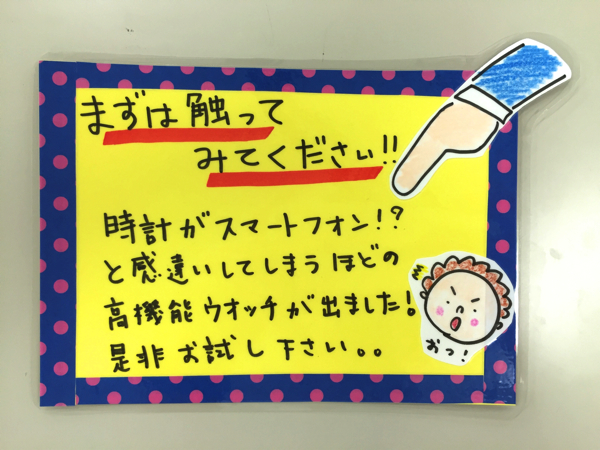 まずは触って
みてください!!
時計がスマートフォン!?
と感違いしてしまうほどの
高機能ウオッチが出ました!
是非お試し下さい。。
おっ!